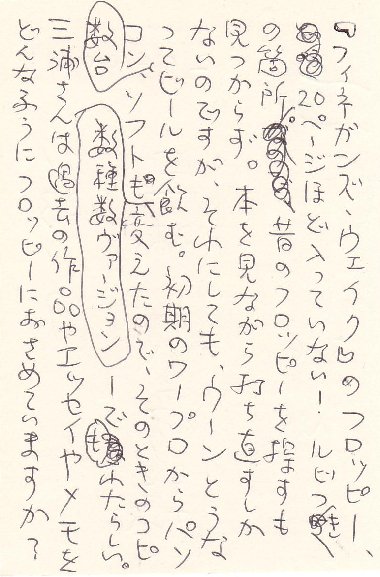 『フィネガンズ・ウェイク』のフロッピー、
20ページほど入っていない!ルビつき
の箇所。昔のフロッピーを捜すも
見つからず。本を見ながら打ち直すしか
ないのですが、それにしても、ウーンとうな
ってビールを飲む。初期のワープロからパソ
コン、ソフトも変えたので、そのときのコピ
数台 数種数ヴァージョン ーでもれたらしい。
三浦さんは過去の作品やエッセイやメモを
どんなふうにフロッピーにおさめていますか?